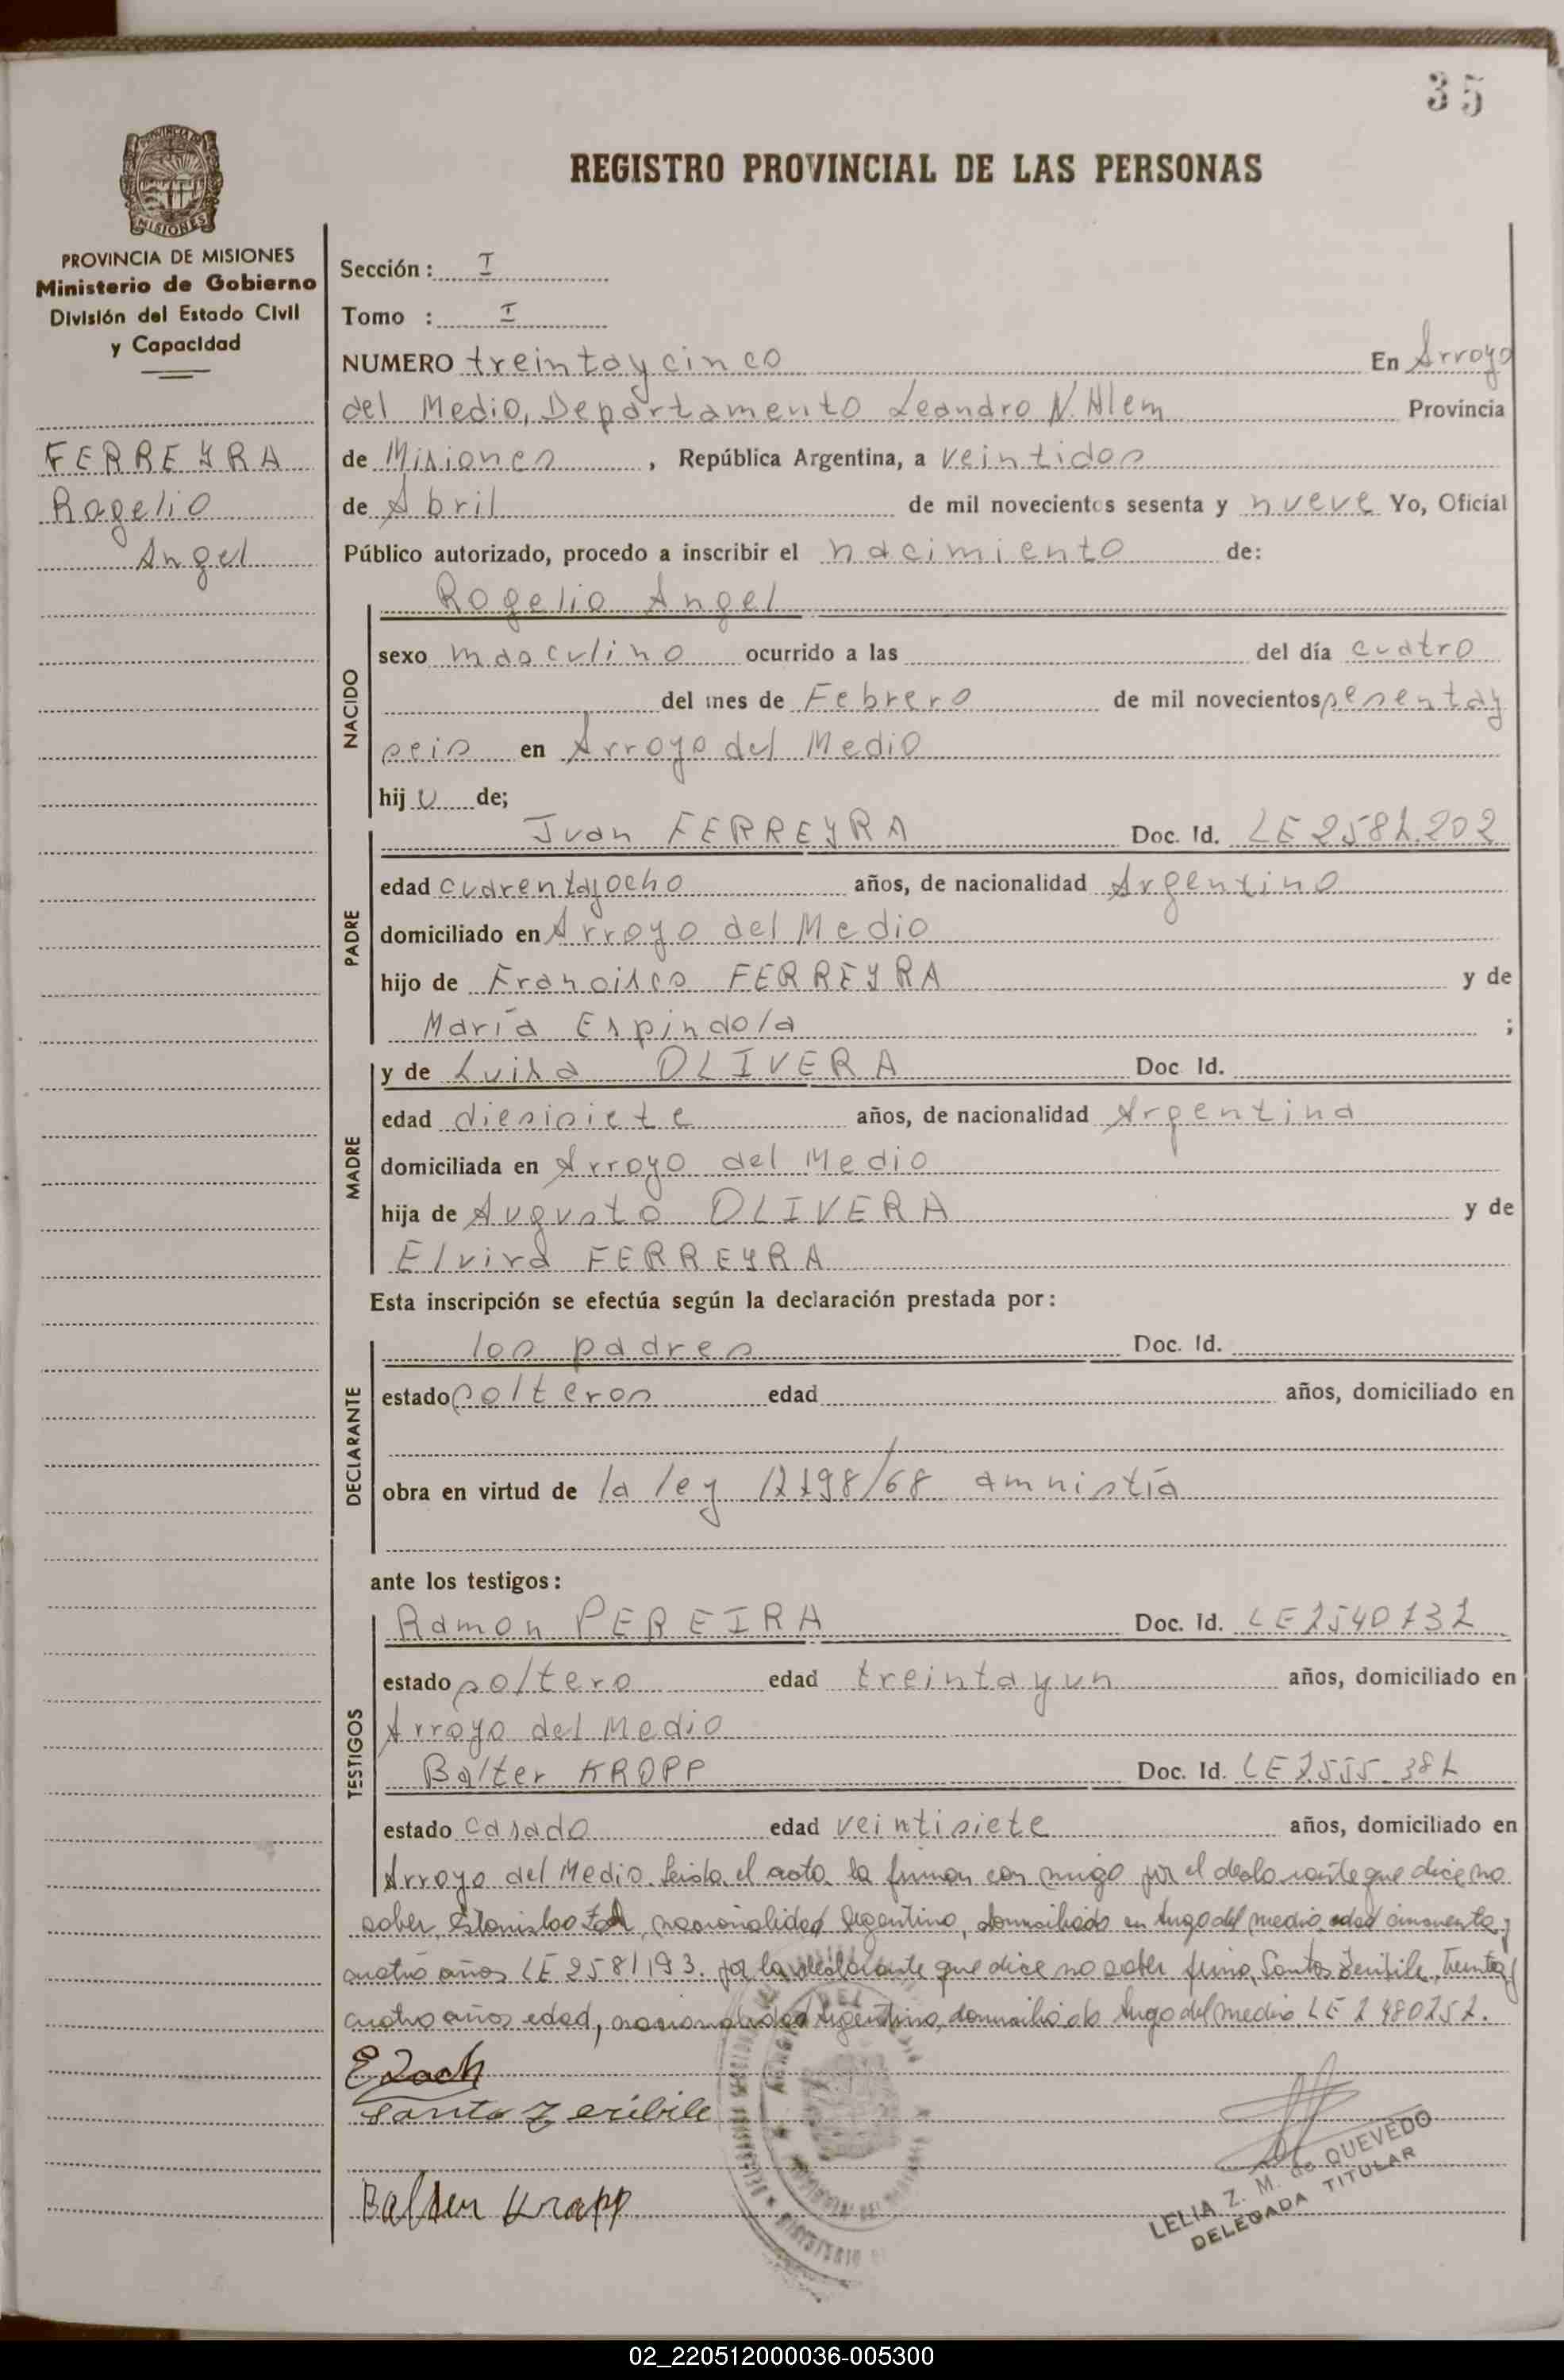 35
REGISTRO PROVINCIAL DE LAS PERSONAS
PROVINCIA DE MISIONES
Ministerio de Gobierno
División del Estado Civil
y Capacidad
FERREYRA
Rogelio
Angel
Sección : I
Tomo : I
NUMERO treinta y cinco En Arroyo
del Medio, Departamento Leandro N. Alem Provincia
de Misiones , República Argentina, a veintidos
de Abril de mil novecientos sesenta y nueve Yo, Oficial
Público autorizado, procedo a inscribir el nacimiento de:
NACIDO
Rogelio Angel
sexo masculino ocurrido a las del día cuatro
del mes de Febrero de mil novecientos sesenta y
seis en Arroyo del Medio
hijo de;
PADRE
Juan FERREYRA Doc. Id. LE 2581.202
edad cuarenta y ocho años, de nacionalidad Argentino
domiciliado en Arroyo del Medio
hijo de Francisco FERREYRA y de
María Espindola ;
MADRE
y de Luisa OLIVERA Doc. Id.
edad diesisiete años, de nacionalidad Argentina
domiciliada en Arroyo del Medio
hija de Augusto OLIVERA y de
Elvira FERREYRA
Esta inscripción se efectúa según la declaración prestada por:
DECLARANTE
los padres Doc. Id.
estado solteros edad años, domiciliado en
obra en virtud de la ley amnistía
ante los testigos:
TESTIGOS
Ramon PEREIRA Doc. Id. LE
estado soltero edad treinta y un años, domiciliado en
Arroyo del Medio
Balter KROPP Doc. Id. LE
estado casado edad veintisiete años, domiciliado en
Arroyo del Medio. Leida el acta la firman con migo por el declarante que dice no
saber, Estanislao nacionalidad Argentino, domiciliado en del medio, edad cincuenta y
cuatro años LE 2581193. por la declarante que dice no saber firma, Santos Treinta y
cuatro años edad, nacionalidad Argentino, domiciliado del medio. LE
E Zach
Balter Kropp
LELIA Z. M. de QUEVEDO
DELEGADA TITULAR
02_220512000036-005300